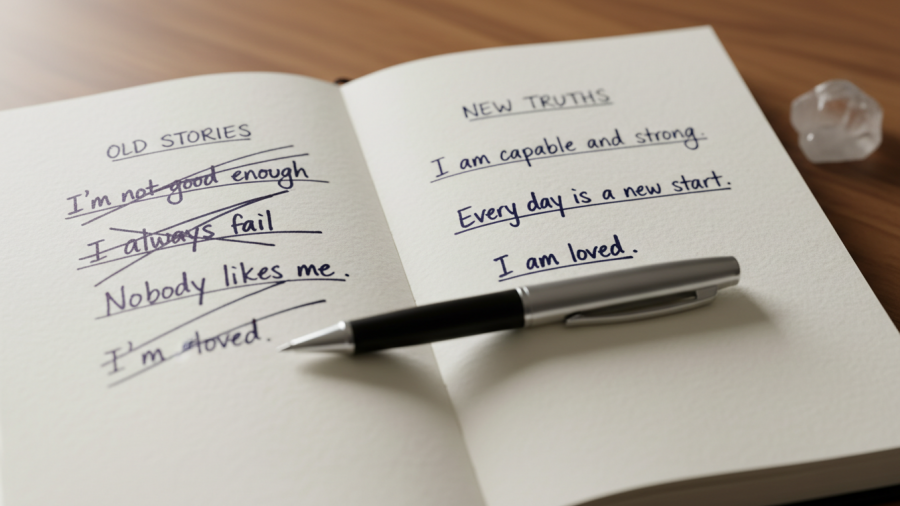 OLD STORIES
I'm not good enough
I always fail
Nobody likes me.
I'm loved.
NEW TRUTHS
I am capable and strong.
Every day is a new start.
I am loved.